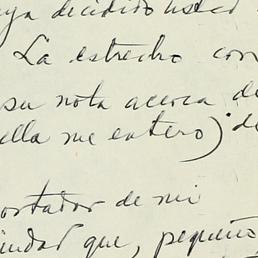 ya decidido usted
La estrecho con
su nota acerca de
ella me entero) de
portador de mi
que, pequeño